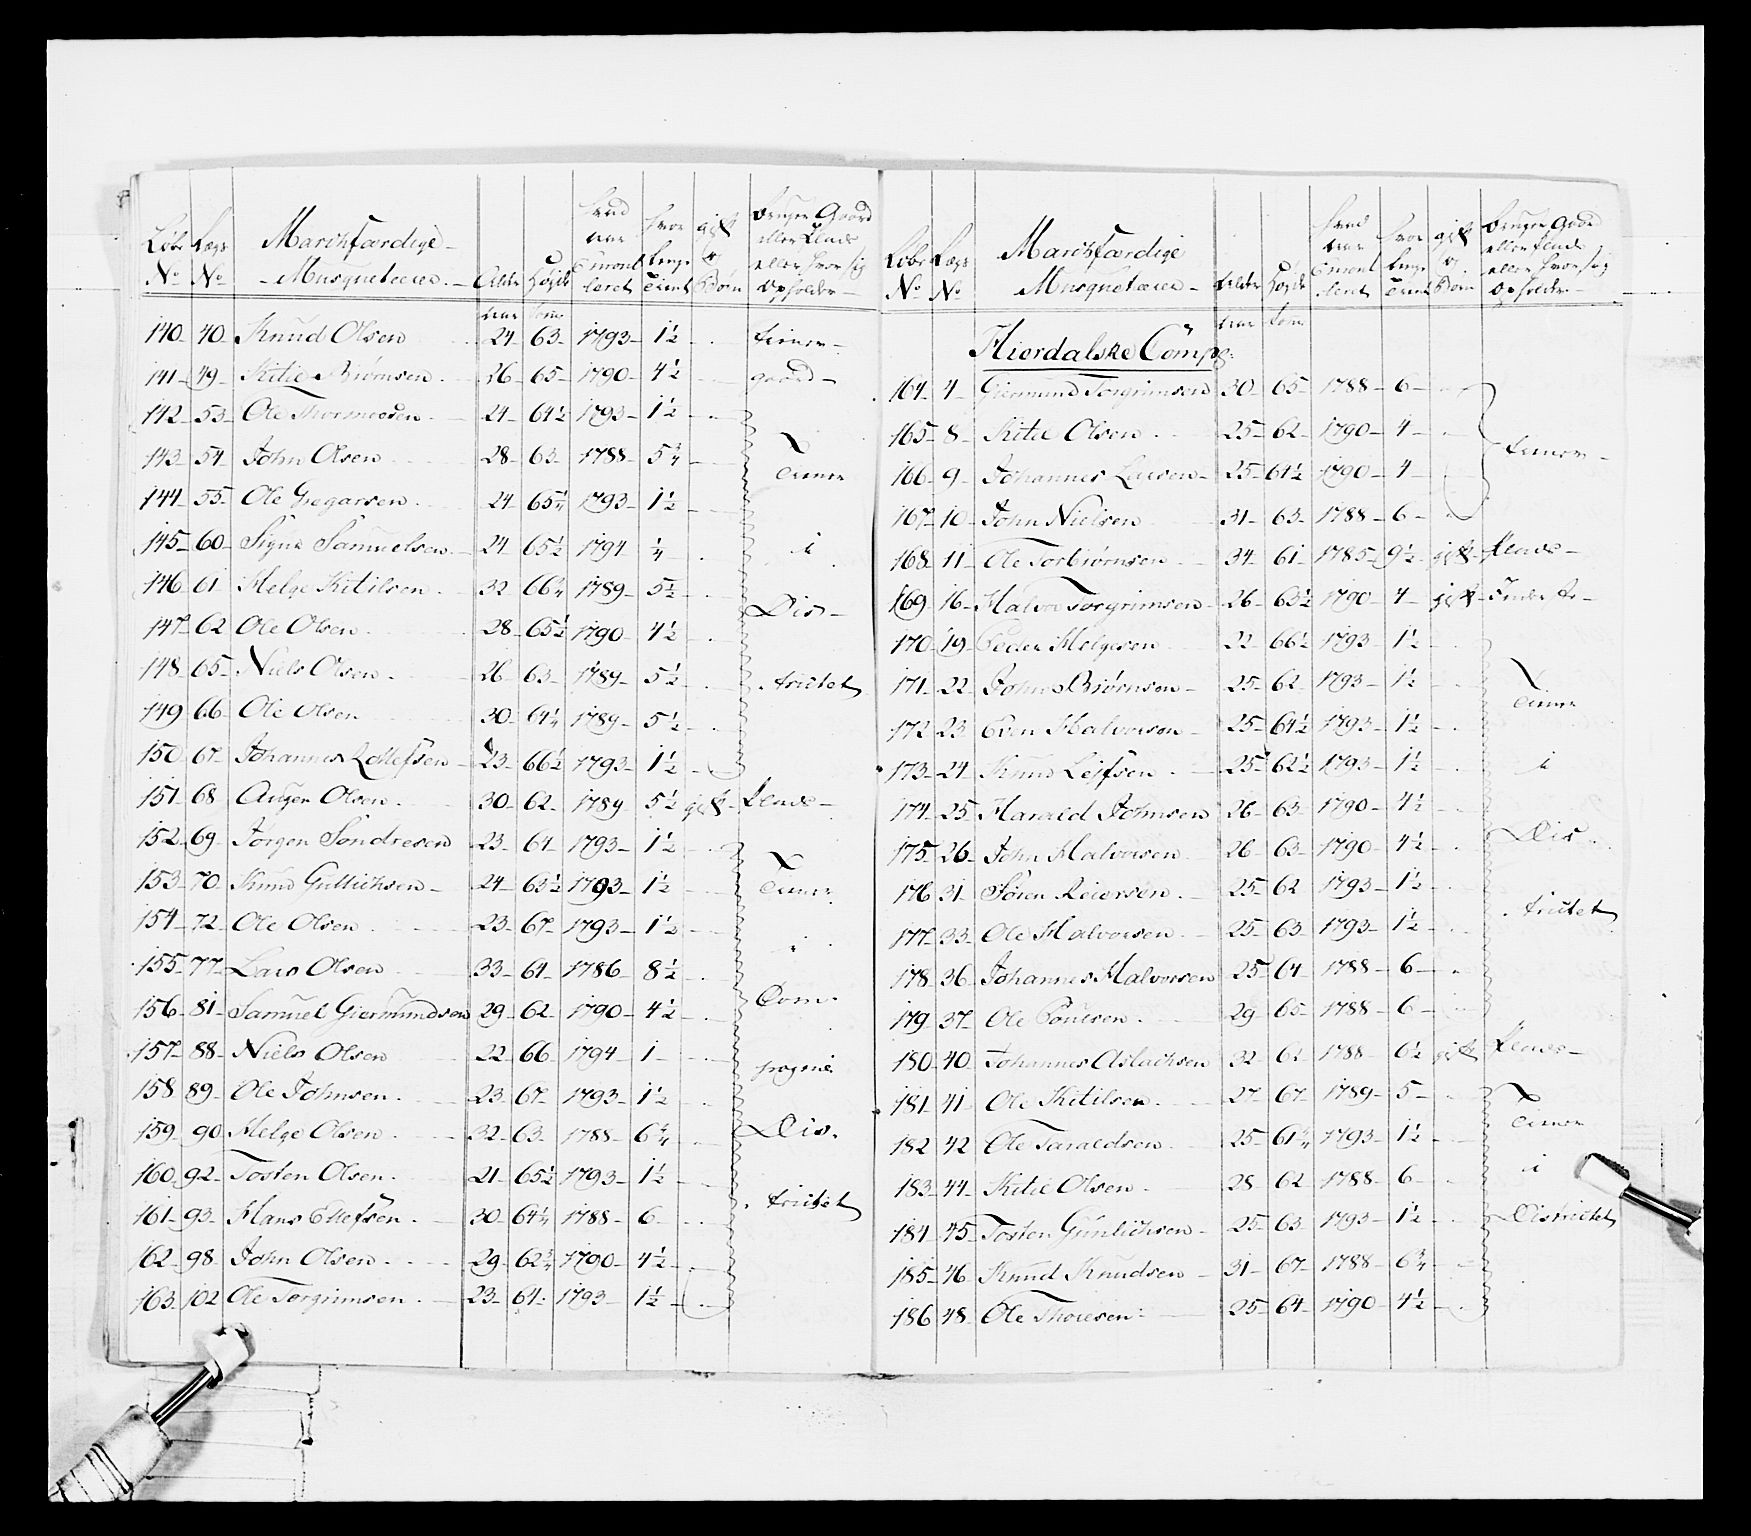 Løbe Lægs Marchfærdige
No No Musqueteerer Alder Høyde hvad aar Enroulleret hvor længe Tient gift og Børn bruger Gaard eller Plads eller hvor sig Opholder
aar tom
140 40 Knud Olsen 24 63 1793 1½ tiener
141 49 Kittil Biörnsen 26 65 1790 4½ gaard
142 53 Ole Thormodsen 24 64½ 1793 1½
143 54 John Olsen 28 63 1788 5¾ Tiener
144 55 Ole Gregarsen 24 65¼ 1793 1½
145 60 Signe Samuelsen 24 65½ 1794 ¼ i
146 61 Helge Kitilsen 32 66¾ 1789 5½ Dis-
147 62 Ole Olsen 28 65½ 1790 4½
148 65 Niels Olsen 26 63 1789 5½ trictet
149 66 Ole Olsen 30 64¼ 1789 5½
150 67 Johannes Rollefsen 23 66½ 1793 1½
151 68 Augen Olsen 30 62 1789 5½ gift Plads
152 69 Jörgen Söndresen 23 64 1793 1½
153 70 Knud Gullichsen 24 63½ 1793 1½ Tiener
154 72 Ole Olsen 23 67 1793 1½ i
155 77 Lars Olsen 33 64 1786 8½
156 81 Samuel Giermundsen 29 62 1790 4½ Com-
157 88 Niels Olsen 22 66 1794 1 pagnie
158 89 Ole Johnsen 23 67 1793 1½
159 90 Helge Olsen 32 63 1788 6¾ Dis-
160 92 Tosten Olsen 21 65½ 1793 1½
161 93 Hans Ellefsen 30 64¼ 1788 6 trictet
162 98 John Olsen 29 62¾ 1790 4½
163 102 Ole Torgrimsen 23 64 1793 1½
Løbe Lægs Marchfærdige
No No Musqueteerer Alder Høyde hvad aar Enroulleret hvor længe Tient gift og Børn bruger Gaard eller Plads eller hvor sig Opholder
aar tom
Hierdalske Comp:
164 4 Giermund Torgrimsen 30 65 1788 6
165 8 Kitil Olsen 25 62 1790 4 tiener
166 9 Johannes Larsen 25 61½ 1790 4
167 10 John Nielsen 31 63 1788 6
168 11 Ole Torbiørnsen 34 61 1785 9½ gift Plads
169 16 Halvor Torgrimsen 26 63½ 1790 4 gift
170 19 Peder Helgesen 22 66½ 1793 1½
171 22 John Biørnsen 25 62 1793 1½ Tiener
172 23 Even Halvorsen 25 64½ 1793 1½
173 24 Knud Leifsen 25 62½ 1793 1½ i
174 25 Harald Johnsen 26 63 1790 4½
175 26 John Halvorsen 26 63 1790 4½ Dis-
176 31 Sören Reiersen 25 62 1793 1½
177 33 Ole Halvorsen 25 63 1793 1½ trictet
178 36 Johannes Halvorsen 25 64 1788 6
179 37 Ole Poulsen 29 65 1788 6
180 40 Johannes Aslachsen 32 62 1788 6½ gift Plads
181 41 Ole Kitilsen 27 67 1789 5
182 42 Ole Taraldsen 25 61¾ 1793 1½ Tiener
183 44 Kitil Olsen 28 62 1788 6 i
184 45 Tosten Gunlichsen 25 63 1793 1½ Districtet
185 46 Knud Knudsen 31 67 1788 6¾
186 48 Ole Thoresen 25 64 1790 4½